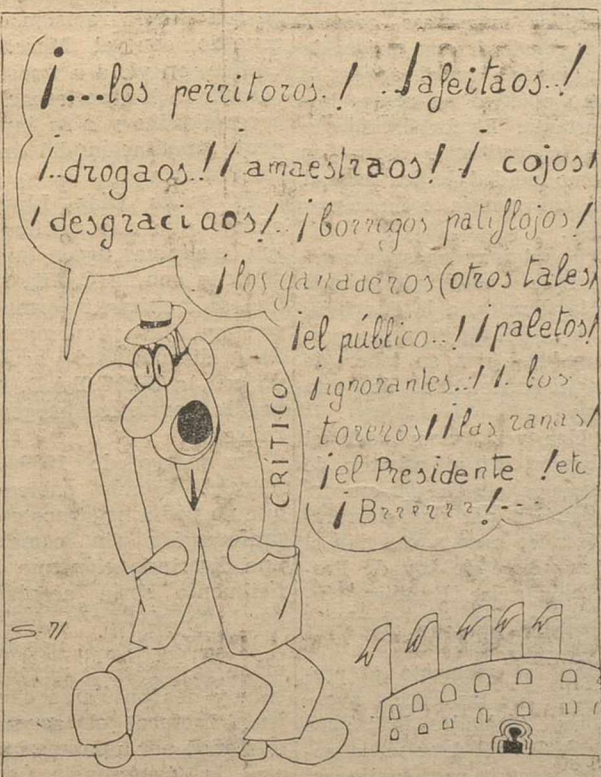 ¡...los perritoros.! ..¡afeitaos..!
¡..drogaos.! ¡amaestraos! ¡cojos!
¡desgraciaos!. ¡borregos patiflojos!
¡los ganaderos (otros tales)
¡el público..! ¡paletos!
¡ignorantes..! ¡. los
toreros! ¡las ranas!
¡el Presidente! etc
¡Brrrrrr!...
CRÍTICO
S-71